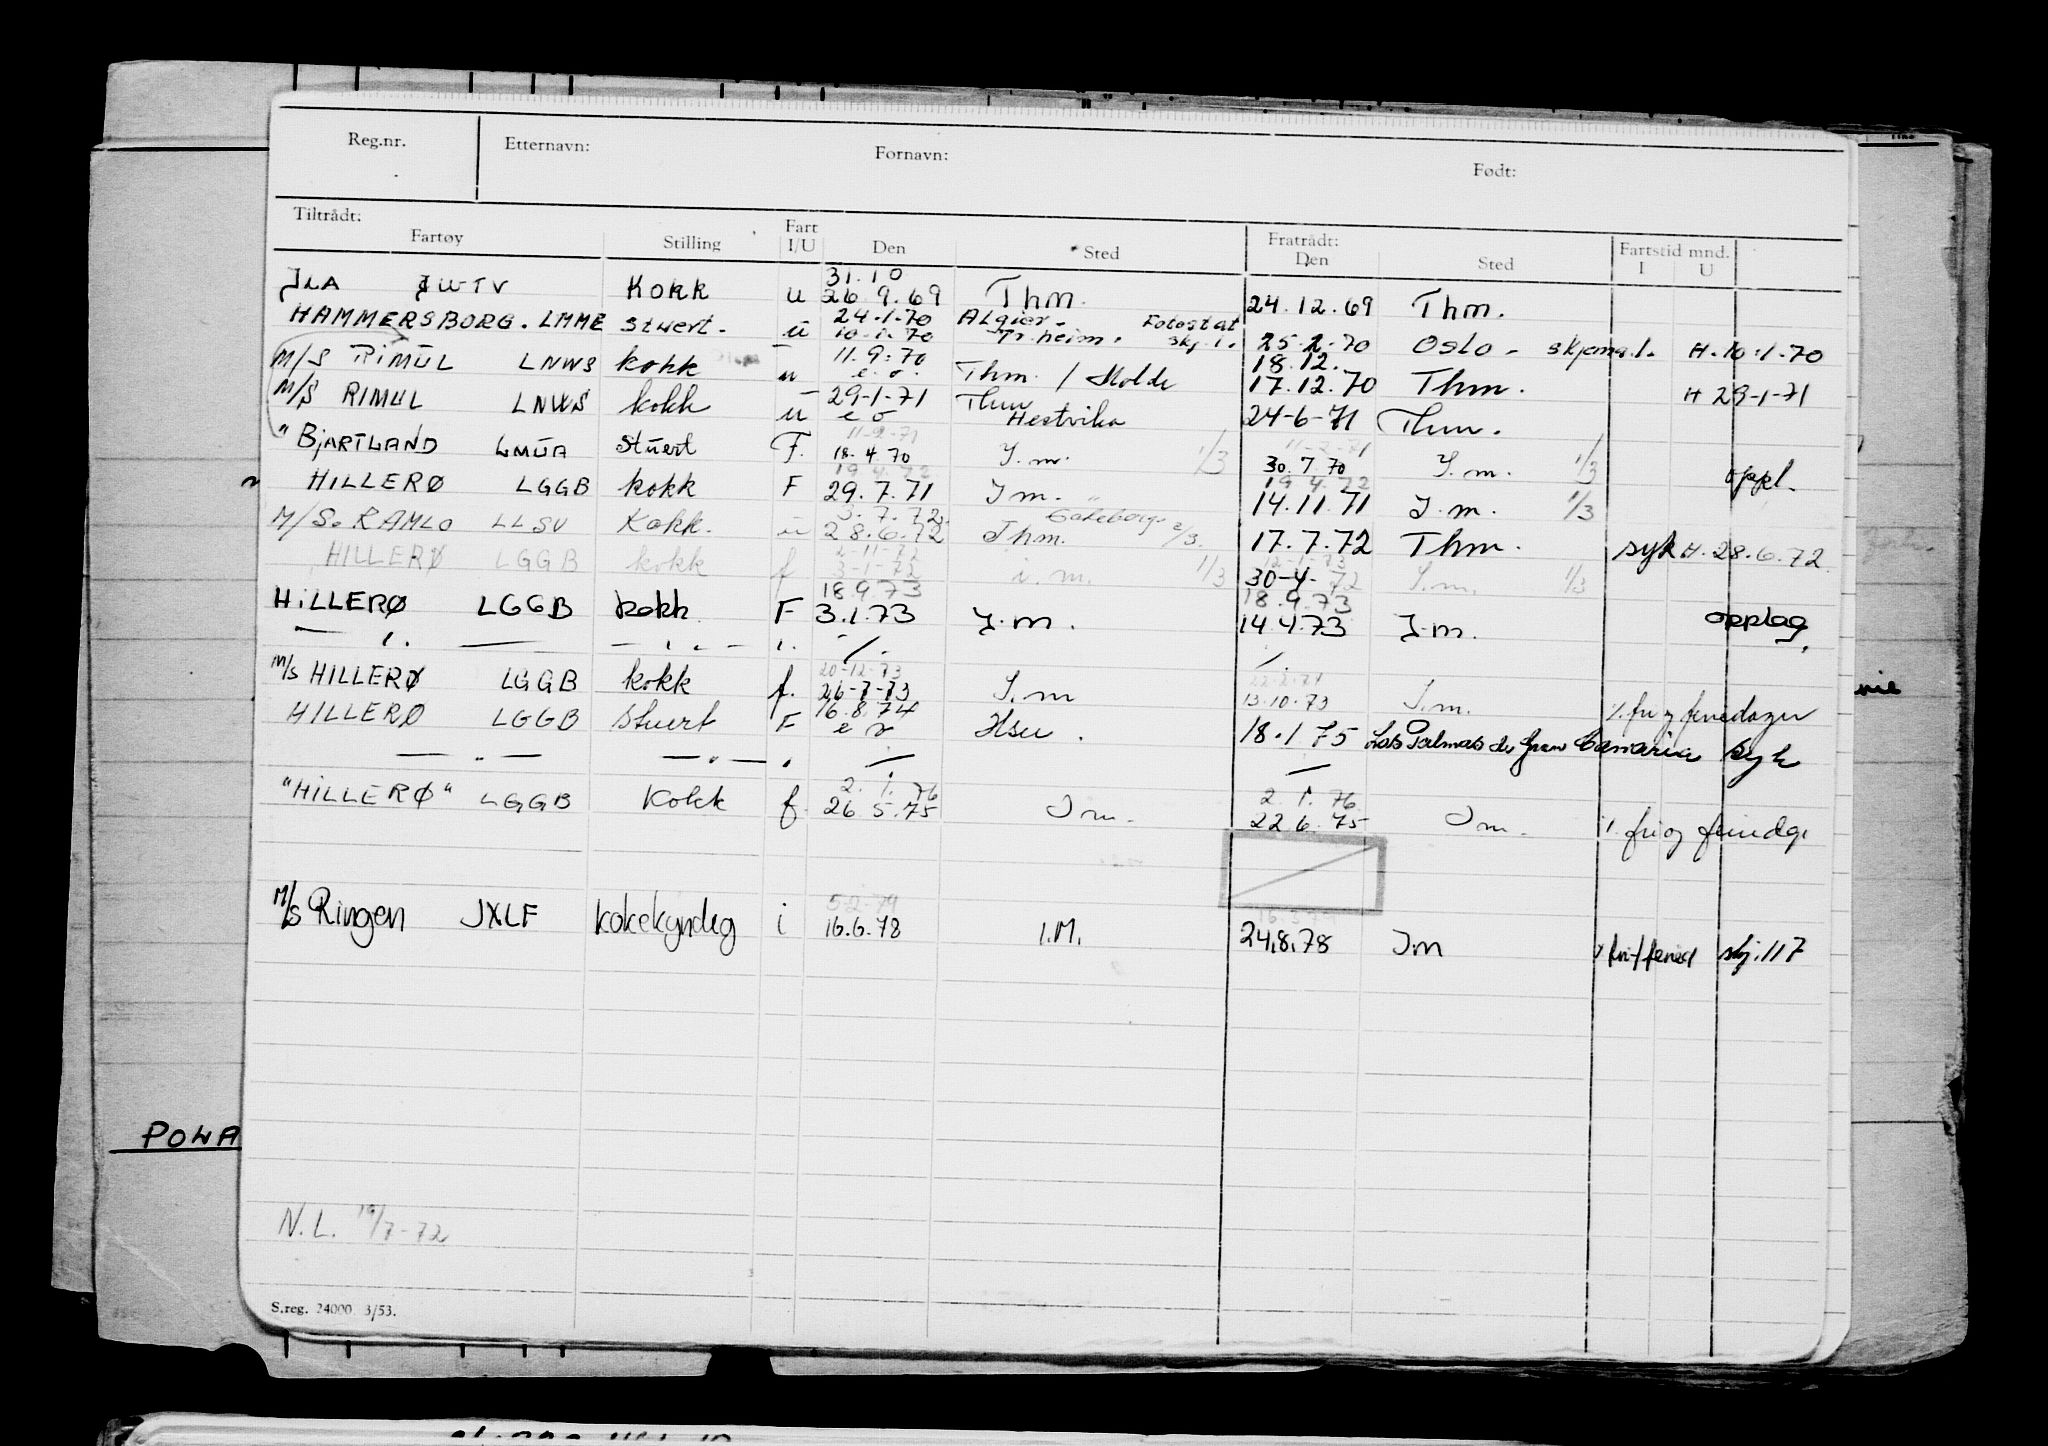 Reg.nr. Etternavn: Fornavn: Født:
Tiltrådt: Fratrådt:
Fartøy Stilling Fart I/U Den Sted Den Sted Fartstid mnd. I U
31.10
JLA JWTV Kokk u 26.9.69 Thm. 24.12.69 Thm.
24.1.70 Algier Fotostat
HAMMERSBORG. LMME stuert. u 10.1.70 Tr.heim. skj.1. 25.2.70 Oslo. skjema1. H.10.1.70
11.9.70 18.12.
M/S RIMUL LNWS kokk u e.o. Thm. / Molde 17.12.70 Thm. H 29-1-71
29-1-71 Thm
M/S RIMUL LNWS kokk u e o Hestvika 24-6-71 Thm.
11-2-71 11-2-71
" BjARTLAND LMUA stuert F. 18.4.70 I.m. 1/3 30.7.70 I.m. 1/3 oppl.
19.4.72 19 4.72
HILLERØ LGGB kokk F 29.7.71 Im. 14.11.71 I.m. 1/3
3.7.72 Gøteborg
M/S. RAMLO LLSU Kokk. u 28.6.72 Thm. 2/3. 17.7.72 Thm. syk H.28.6.72
2-11-72
HILLERØ LGGB kokk f 3-1-72 i.m. 1/3 30-4-72 I.m. 1/3
18.9.73 18.9.73
HILLERØ LGGB kokk F 3.1.73 I.m. 14.4.73 I.m. opplag,
20-12-73
M/S HILLERØ LGGB kokk f. 26-7-73 I.m 13.10.73 I.m. %. fri og feriedager
16.8.74
HILLERØ LGGB stuert F e o Hsu. 18.1 75 Las Palmas de Gran Canaria syk
2. 1. 76 2. 1. 76
"HILLERØ" LGGB Kokk f. 26.5.75 Im. 22 6.75 Im. %. fri og feriedg.
5-2-79
M/S Ringen JXLF kokekyndig i 16.6.78 I.M. 24.8.78 I.m skj.117
POWA
N.L. 19/7-72
S.reg. 24000 3/53.